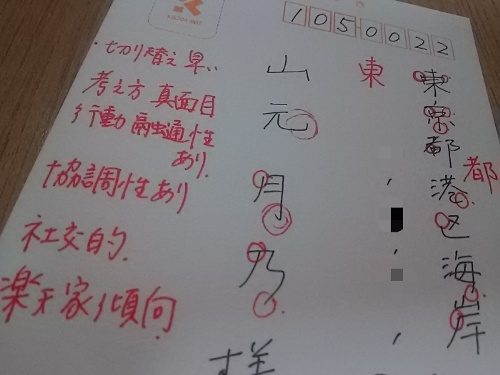 1050022
東京都港区海岸
東
都
山元月乃様
・切り替え早い
考え方 真面目
行動 融通性あり
協調性あり
社交的
楽天家傾向